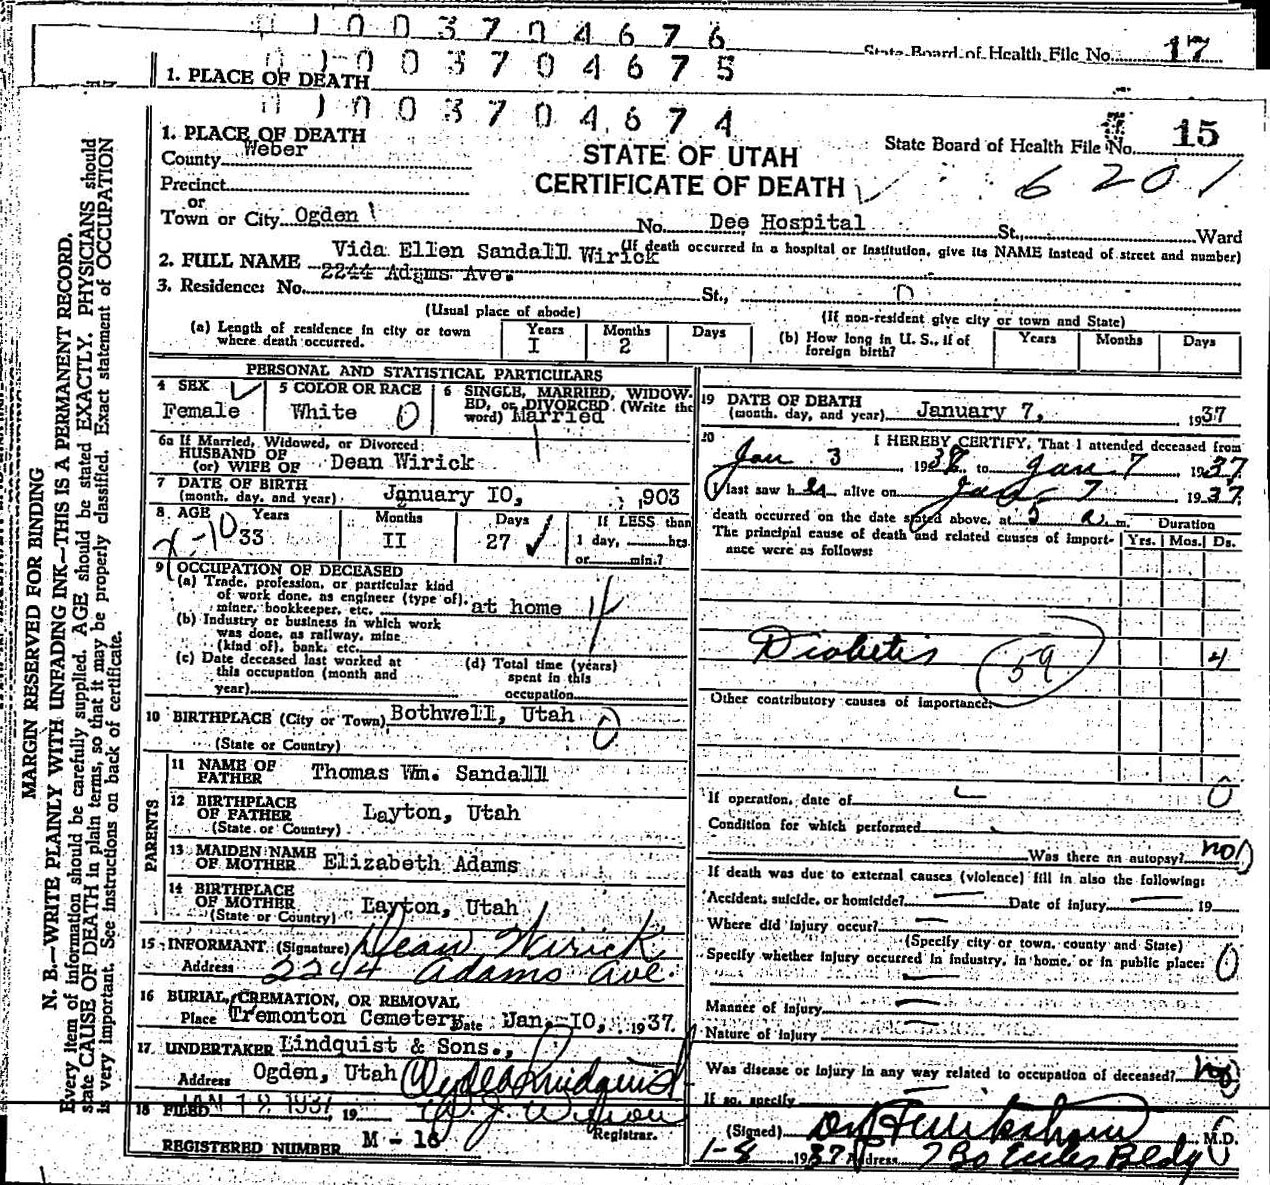 1 1 0 0 3 7 0 4 6 7 6
State Board of Health File No. 17
1 1 0 0 3 7 0 4 6 7 5
1. PLACE OF DEATH
1 1 0 0 3 7 0 4 6 7 4
1. PLACE OF DEATH
County Weber
STATE OF UTAH
State Board of Health File No. 15
Precinct
CERTIFICATE OF DEATH
6 201
or
Town or City Ogden No. Dee Hospital St., Ward
(If death occurred in a hospital or institution, give its NAME instead of street and number)
2. FULL NAME Vida Ellen Sandall Wirick
2244 Adams Ave.
3. Residence: No. St.,
(Usual place of abode) (If non-resident give city or town and State)
(a) Length of residence in city or town where death occurred. Years I Months 2 Days
(b) How long in U. S., if of foreign birth? Years Months Days
PERSONAL AND STATISTICAL PARTICULARS
4 SEX Female
5 COLOR OR RACE White 0
6 SINGLE, MARRIED, WIDOWED, or DIVORCED (Write the word) Married
6a If Married, Widowed, or Divorced
HUSBAND OF
(or) WIFE OF Dean Wirick
7 DATE OF BIRTH
(month, day, and year) January IO, ,903
8 AGE Years 33 Months II Days 27 If LESS than 1 day, hrs. or min.?
9 OCCUPATION OF DECEASED
(a) Trade, profession, or particular kind
of work done, as engineer (type of),
miner, bookkeeper, etc. at home
(b) Industry or business in which work
was done, as railway, mine
(kind of), bank, etc.
(c) Date deceased last worked at this occupation (month and year)
(d) Total time (years) spent in this occupation
10 BIRTHPLACE (City or Town) Bothwell, Utah 0
(State or Country)
PARENTS
11 NAME OF FATHER Thomas Wm. Sandall
12 BIRTHPLACE OF FATHER Layton, Utah
(State or Country)
13 MAIDEN NAME OF MOTHER Elizabeth Adams
14 BIRTHPLACE OF MOTHER Layton, Utah
(State or Country)
15 INFORMANT (Signature) Dean Wirick
Address 2244 Adams Ave.
16 BURIAL, CREMATION, OR REMOVAL
Place Tremonton Cemetery Date Jan. IO, 1937
17 UNDERTAKER Lindquist & Sons.,
Address Ogden, Utah
18 FILED JAN 12 1937 19
Registrar.
REGISTERED NUMBER M - 16
19 DATE OF DEATH
(month, day, and year) January 7, 1937
20 I HEREBY CERTIFY, That I attended deceased from
Jan 3, 1937, to Jan 7 1937
I last saw her alive on Jan 7 1937
death occurred on the date stated above, at 5 a. m.
Duration
The principal cause of death and related causes of importance were as follows: Yrs. Mos. Ds.
Diabetis 59 4
Other contributory causes of importance:
If operation, date of 0
Condition for which performed
Was there an autopsy? no
If death was due to external causes (violence) fill in also the following:
Accident, suicide, or homicide? Date of injury 19
Where did injury occur?
(Specify city or town, county and State)
Specify whether injury occurred in industry, in home, or in public place: 0
Manner of injury
Nature of injury
Was disease or injury in any way related to occupation of deceased? no
If so, specify
(Signed) M.D.
1-8 1937 Address 730 Eccles Bldg
MARGIN RESERVED FOR BINDING
N. B.—WRITE PLAINLY WITH UNFADING INK—THIS IS A PERMANENT RECORD.
Every item of information should be carefully supplied. AGE should be stated EXACTLY. PHYSICIANS should
state CAUSE OF DEATH in plain terms, so that it may be properly classified. Exact statement of OCCUPATION
is very important. See instructions on back of certificate.